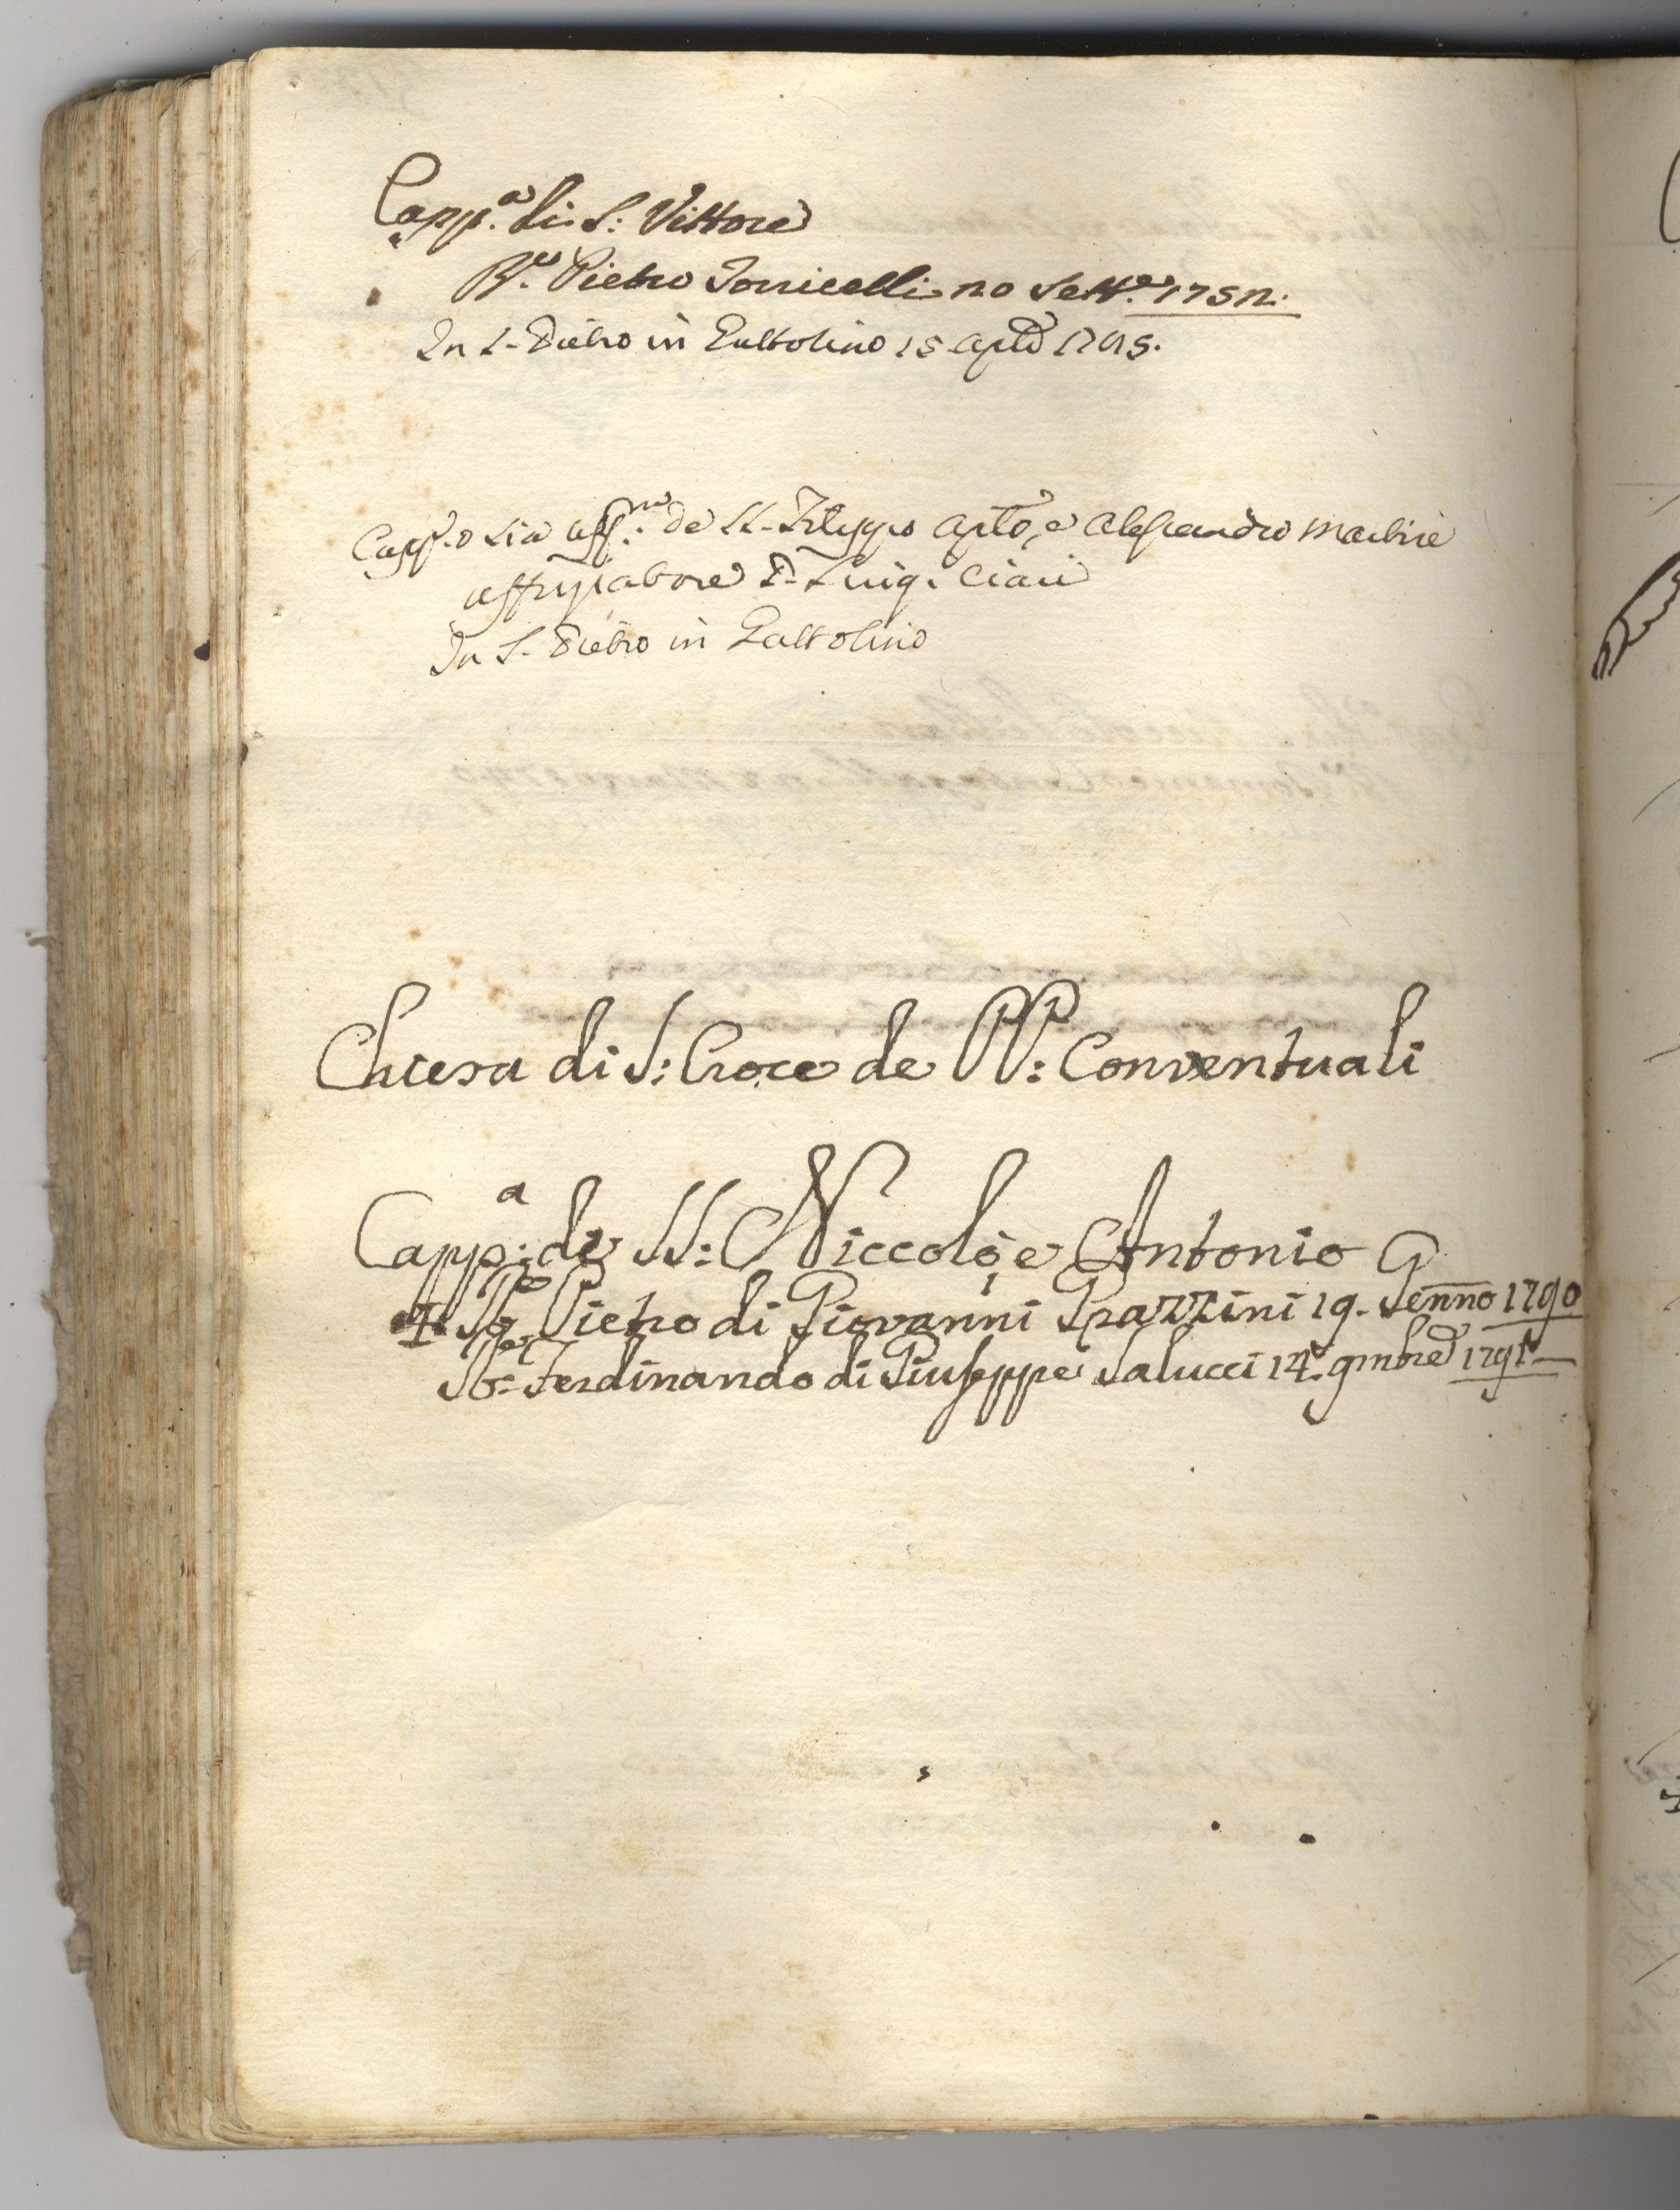 Capp.a di S: Vittore
R.e Pietro Tonicelli 20 Sett.e 1752.
In S. Pietro in Gattolino 15 Aple 1795.
Capp.o sia uff.ra de SS. Filippo Aplo, e Alessandro Martire
uffiziatore P. Luigi Ciari
In S. Pietro in Gattolino
Chiesa di S: Croce de PP: Conventuali
Capp.a de SS: Niccolò, e Antonio
Pietro di Giovanni Grazzini 19. Genno 1790
Ferdinando di Giuseppe Salucci 14. 9mbre 1791